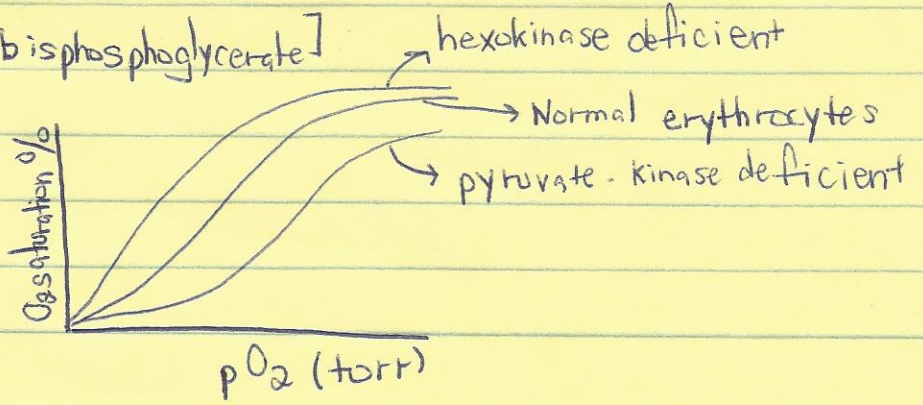 bisphosphoglycerate]
hexokinase deficient
Normal erythrocytes
pyruvate. kinase deficient
O2 saturation %
pO2 (torr)